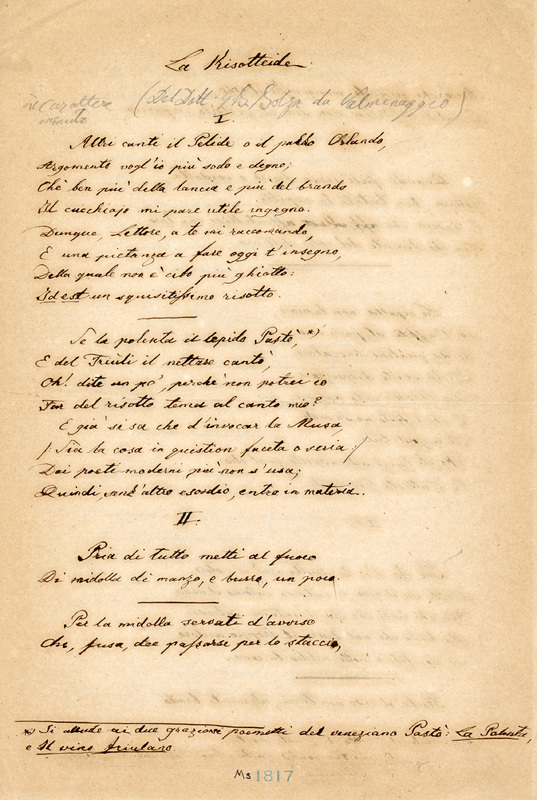 La Risotteide
in carattere (Del Dott. Golza da Valmeraggio)
minuto
I
Altri canti il Pelide o il pazzo Orlando,
Argomento vogl'io più sodo e degno;
Chè ben più della lancia e più del brando
Il cucchiajo mi pare utile ingegno.
Dunque, Lettore, a te mi raccomando,
E una pietanza a fare oggi t'insegno,
Della quale non è cibo più ghiotto:
Id est un squisitissimo risotto.
Se la polenta il lepido Pastò,*)
E del Friuli il nettare cantò,
Oh! dite un po', perchè non potrei io
Far del risotto tema al canto mio?
E già si sa che d'invocar la Musa,
(Sia la cosa in quistion faceta o seria)
Dai poeti moderni più non s'usa;
Quindi, senz'altro esordio, entro in materia.
II
Pria di tutto metti al fuoco
Di midolla di manzo, e burro, un poco.
Per la midolla servati d'avviso
Che, fusa, dee passarsi per lo staccio,
*) Si allude ai due graziosi poemetti del veneziano Pastò: La Polenta,
e Il vino friulano
Ms 1817